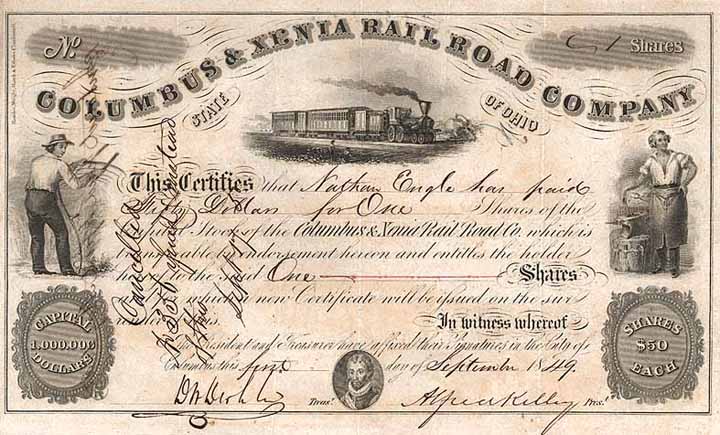 No.
1 Shares
COLUMBUS & XENIA RAIL ROAD COMPANY
STATE OF OHIO
This Certifies that Nathan Engle has paid
Fifty Dollars for One Shares of the
Capital Stock of the Columbus & Xenia Rail Road Co. which is
transferable by endorsement hereon and entitles the holder
hereof to the said One Shares
for which a new Certificate will be issued on the sur
render
In witness whereof
The President and Treasurer have affixed their Signatures in the City of
Columbus this first day of September 1849.
Treasr.
Alfred Kelley Prest.
CAPITAL
1,000,000
DOLLARS
SHARES
$50
EACH
Cancelled
No 356 issued instead
of this